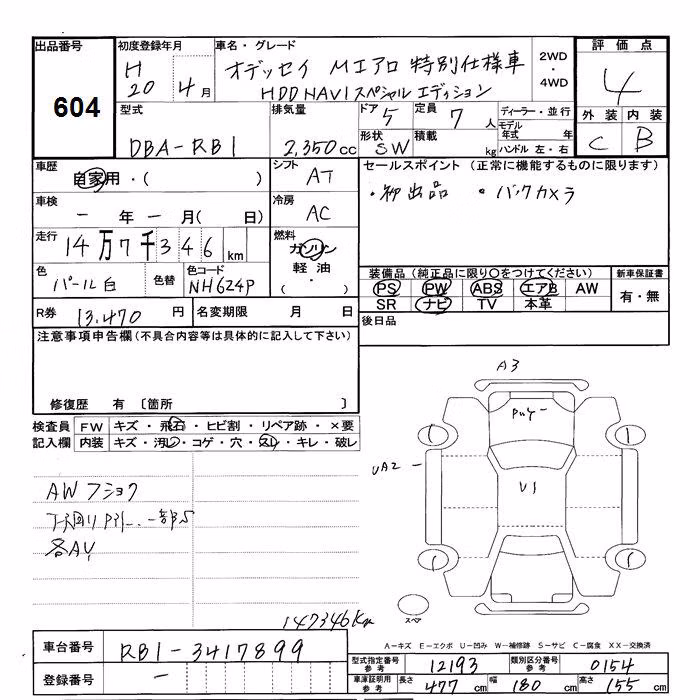 出品番号
604
初度登録年月
H
20 4月
車名・グレード
オデッセイ Mエアロ 特別仕様車
HDDNAVIスペシャルエディション
2WD
・
4WD
評価点
4
外装 内装
C B
型式
DBA-RB1
排気量
2,350cc
ドア 5
形状 SW
定員 7人
積載 kg
ディーラー・並行
モデル年式 年
ハンドル 左・右
車歴
自家用・( )
シフト
AT
セールスポイント (正常に機能するものに限ります)
・初出品 ・バックカメラ
車検
ー年ー月( 日)
冷房
AC
走行
14万7千346km
燃料
ガソリン
軽油
( ・ )
色
パール白
色替
色コード
NH624P
装備品(純正品に限り〇をつけてください)
PS PW ABS エアB AW
SR ナビ TV 本革
新車保証書
有・無
R券 13,470円
名変期限 月 日
後日品
注意事項申告欄(不具合内容等は具体的に記入して下さい)
修復歴 有 〔箇所 〕
検査員
記入欄
FW キズ・飛石・ヒビ割・リペア跡・×要
内装 キズ・汚レ・コゲ・穴・スレ・キレ・破レ
AWフショク
各AU
147346Km
A3
UA2
U1
スペア
A-キズ E-エクボ U-凹み W-補修跡 S-サビ C-腐食 XX-交換済
車台番号 RB1-3417899
登録番号 ー
型式指定番号
参考
12193
類別区分番号
参考
0154
車庫証明用
参考
長さ 477cm
幅 180cm
高さ 155cm